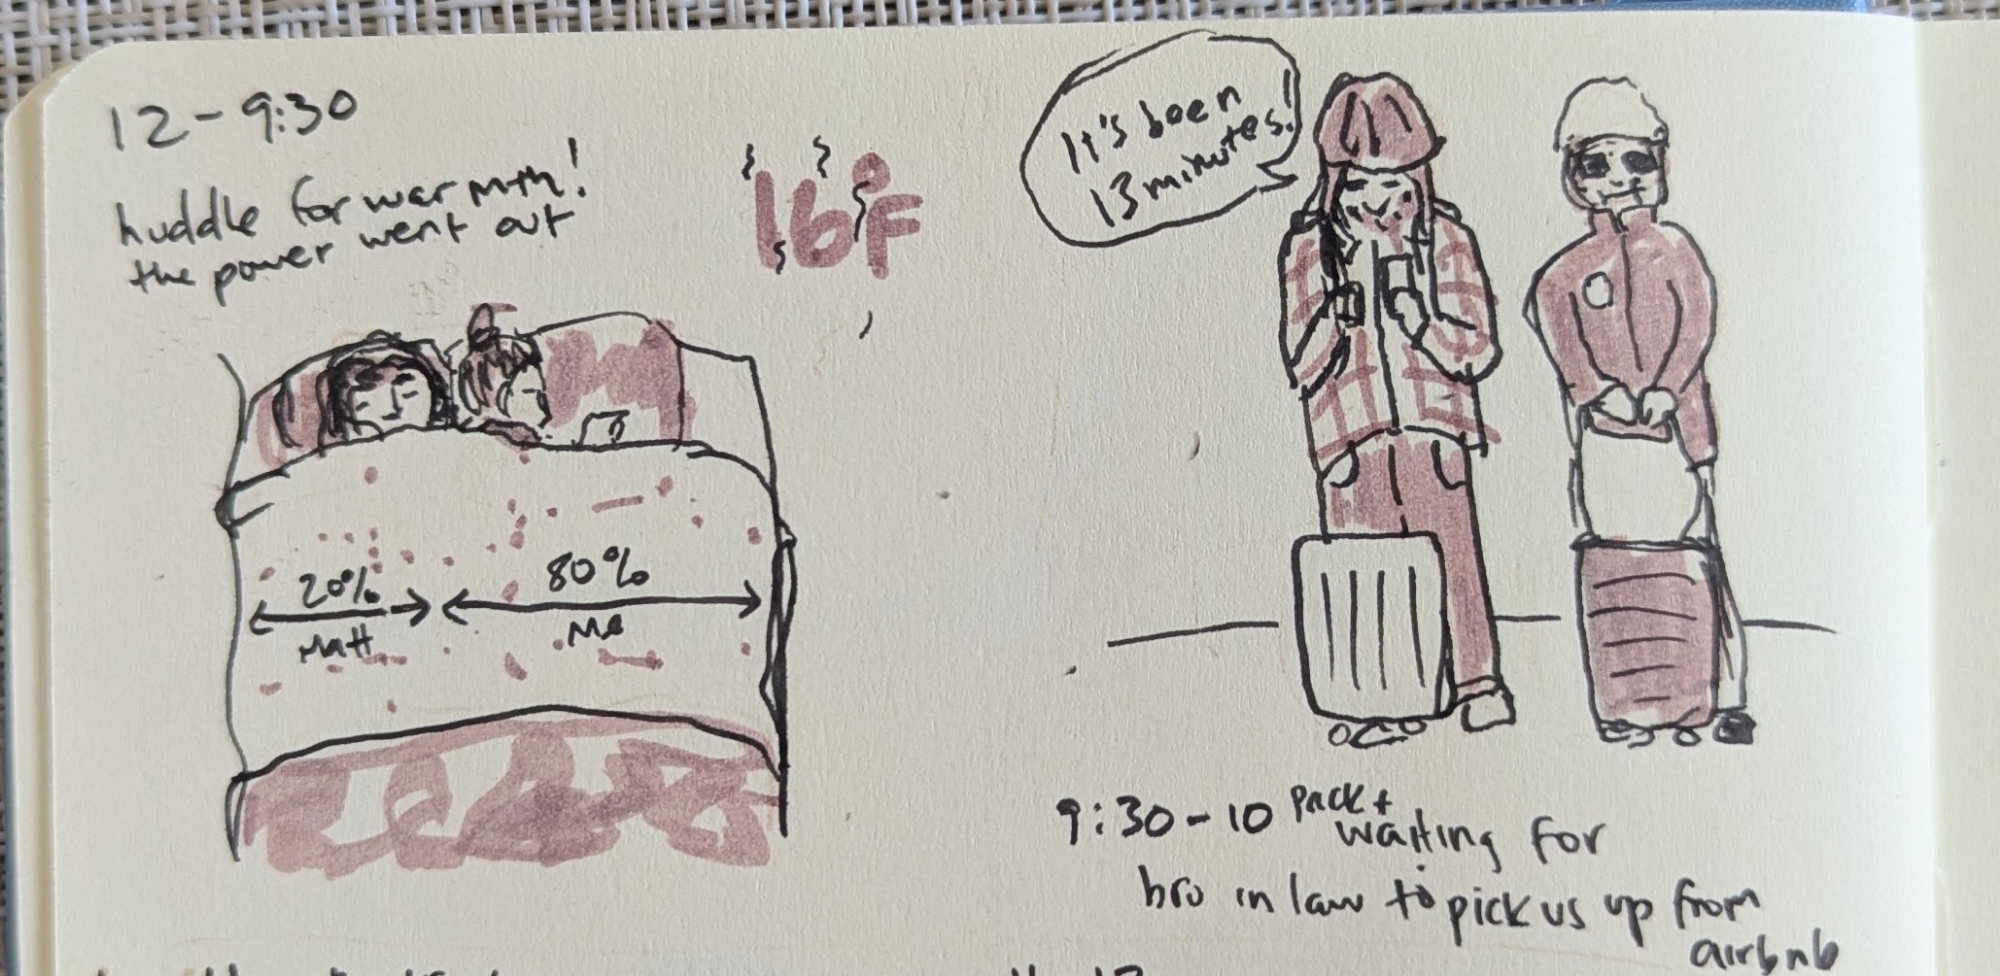 12-9:30
huddle for warmth!
the power went out
16°F
20%
Matt
80%
Me
It's been
13 minutes!
9:30-10 Pack +
waiting for
bro in law to pick us up from
airbnb